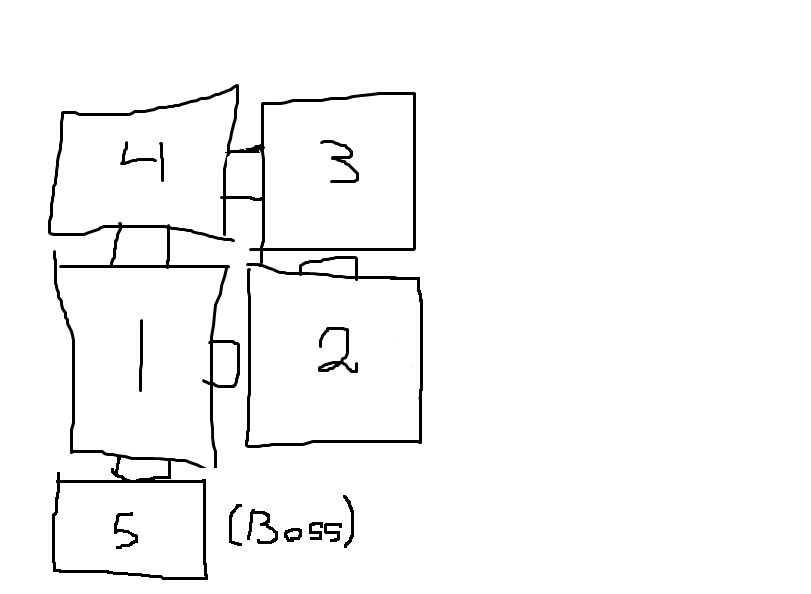 4 3
1 2
5 (Boss)